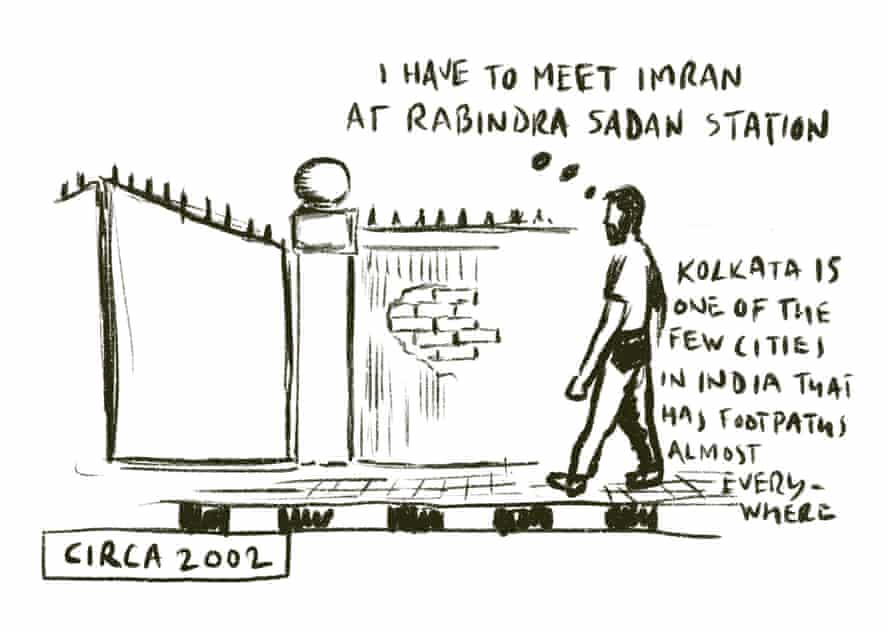 I HAVE TO MEET IMRAN
AT RABINDRA SADAN STATION
KOLKATA IS
ONE OF THE
FEW CITIES
IN INDIA THAT
HAS FOOTPATHS
ALMOST
EVERY-
WHERE
CIRCA 2002